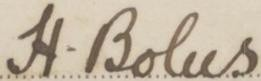 H. Bolus